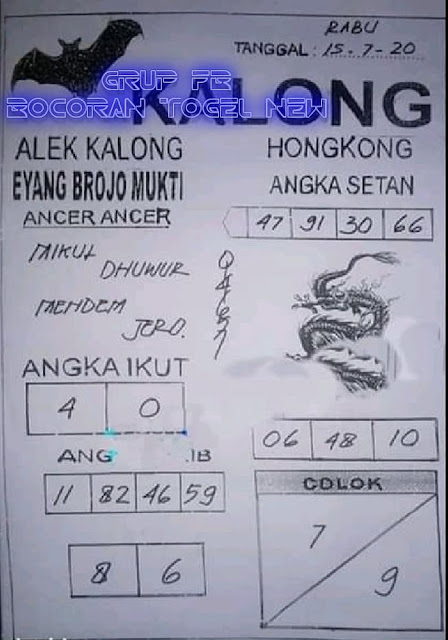 RABU
TANGGAL : 15.-7-20
GRUP FB
BOCORAN TOGEL NEW
KALONG
ALEK KALONG
EYANG BROJO MUKTI
ANCER ANCER
HONGKONG
ANGKA SETAN
47 91 30 66
MIKUL
DHUWUR
MENDEM
JERO.
0
4
6
7
ANGKA IKUT
4 0
ANG IB
11 82 46 59
8 6
06 48 10
COLOK
7
9